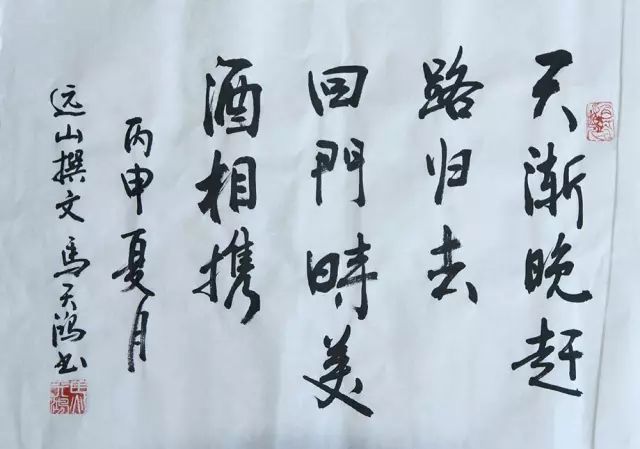 天渐晚赶
路归去
回門時美
酒相携
丙申夏月
远山撰文 馬天鸿书